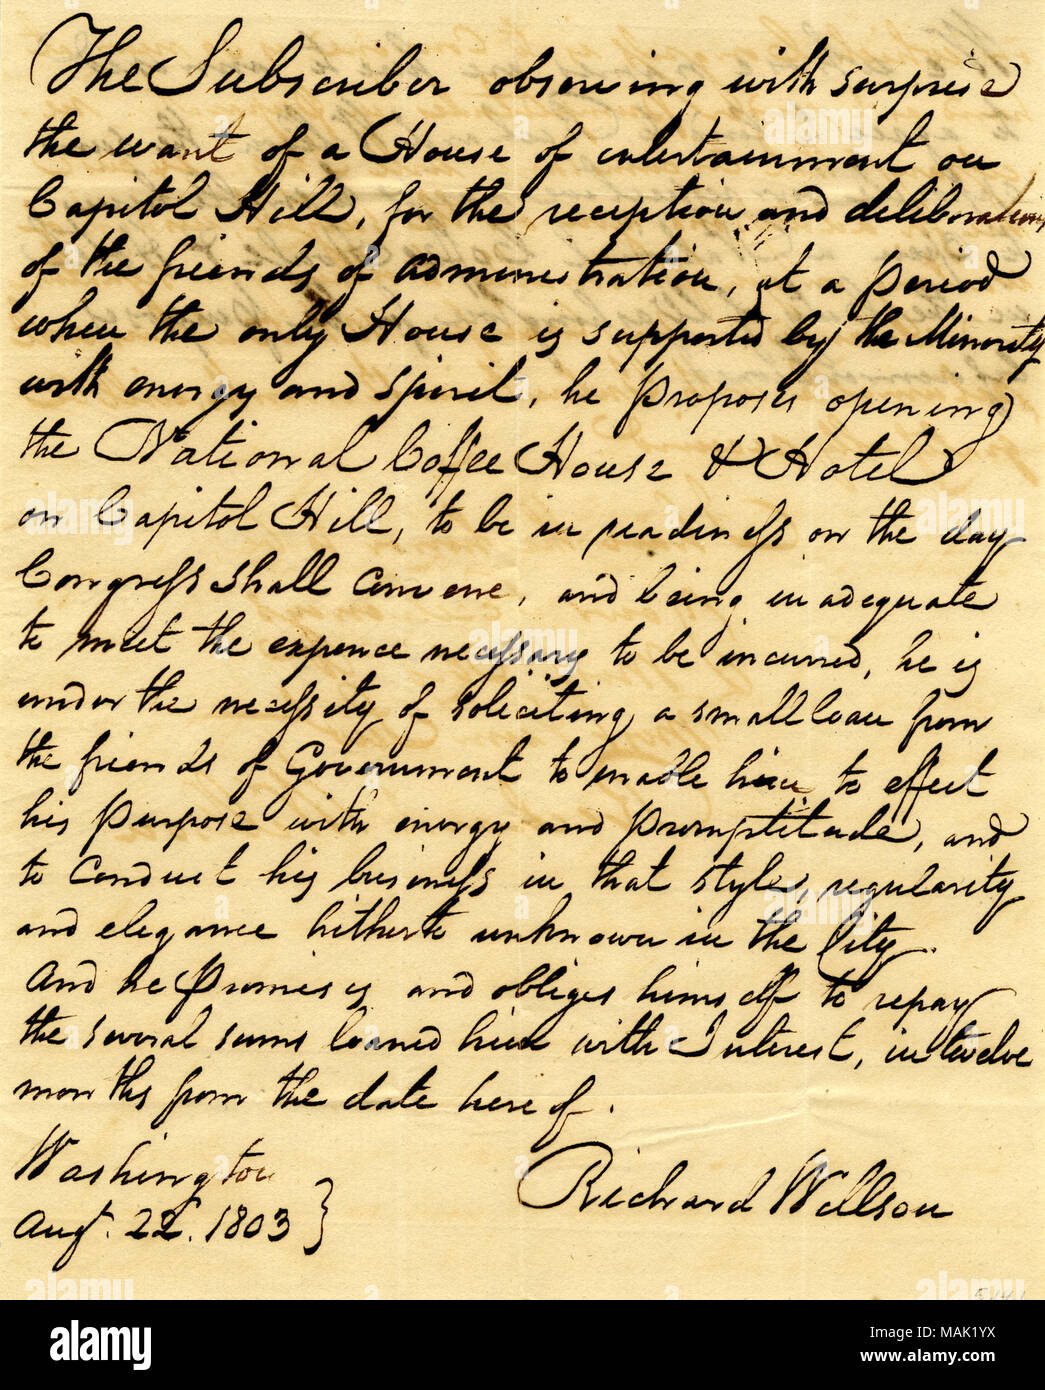 The Subscriber observing with surprise
the want of a House of entertainment on
Capitol Hill, for the reception and deliberations
of the friends of administration, at a period
when the only House is supported by the Minority
with energy and spirit, he proposes opening
the National Coffee House & Hotel
on Capitol Hill, to be in readiness on the day
Congress shall convene, and being inadequate
to meet the expence necessary to be incurred, he is
under the necessity of soliciting a small loan from
the friends of Government to enable him to effect
his purpose with energy and promptitude, and
to conduct his business in that style, regularity
and elegance hitherto unknown in the City.
And he promises and obliges himself to repay
the several sums loaned him with Interest, in twelve
months from the date hereof.
Washington
Augt. 22. 1803 }
Richard Willson
alamy
Image ID: MAK1YX
www.alamy.com